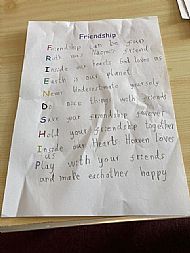 Friendship
Friendship can be fun
Ruth was Naomi's friend
Inside our hearts God loves us
Earth is our planet
Never Underestimate yourself
Do nice things with friends
Save your friendship forever
Hold your friendship together
Inside our Hearts Heaven loves
us
Play with your friends
and make eachother happy